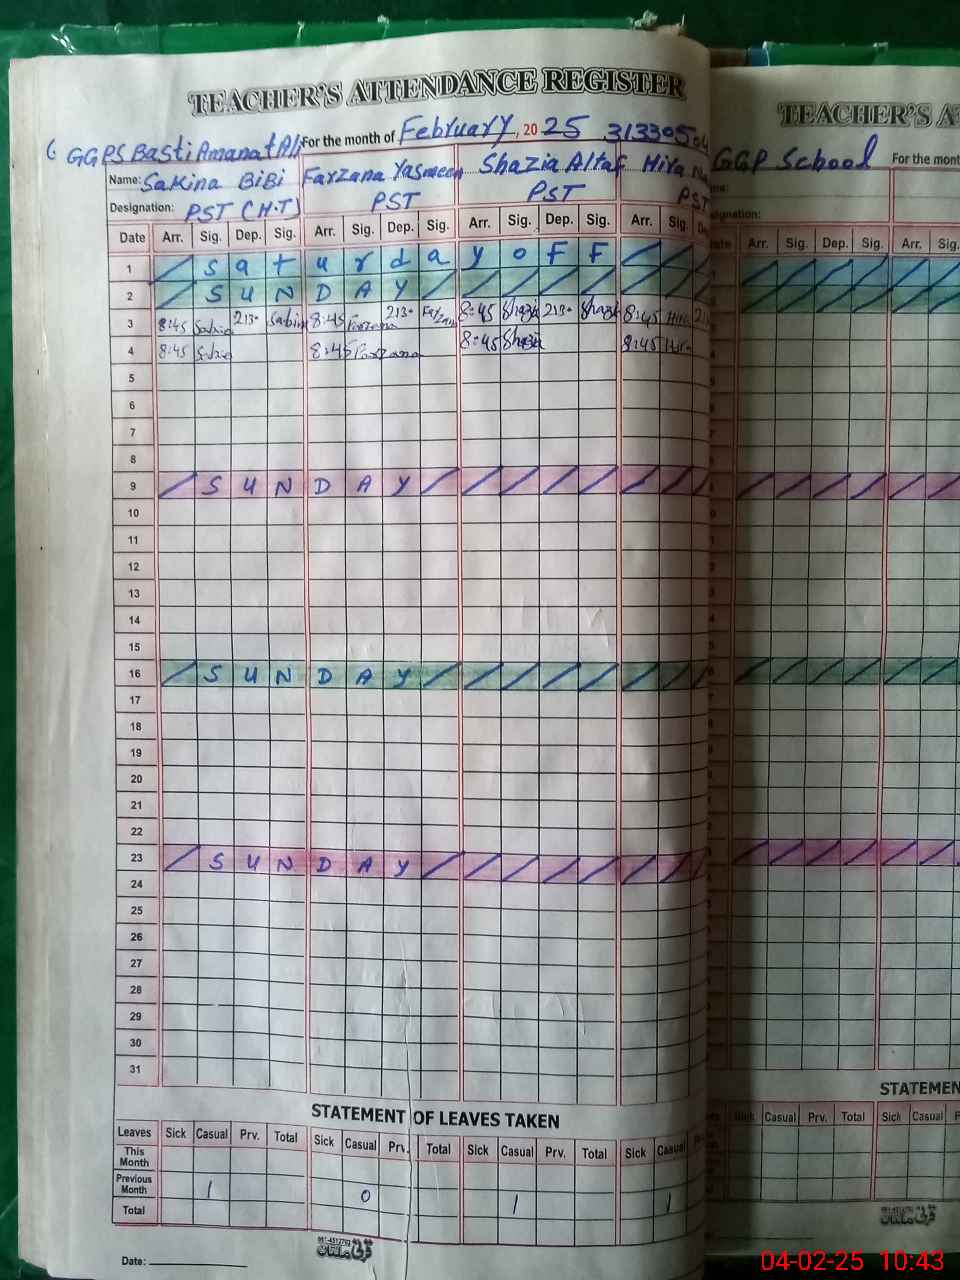 TEACHER'S ATTENDANCE REGISTER
GGPS Basti Amanat Ali For the month of February, 2025
Name: Sakina BiBi Farzana Yasmeen Shazia Altaf Hira
Designation: PST (H.T) PST PST PST
Date Arr. Sig. Dep. Sig. Arr. Sig. Dep. Sig. Arr. Sig. Dep. Sig. Arr. Sig.
1 S a t u r d a y o F F
2 S U N D A Y
3 8:45 2:30 8:45 Farzana 2:30 8:45 Shazia 2:30 Shazia 8:45 Hira
4 8:45 8:45 Farzana 8:45 Shazia 8:45 Hira
5
6
7
8
9 S U N D A Y
10
11
12
13
14
15
16 S U N D A Y
17
18
19
20
21
22
23 S U N D A Y
24
25
26
27
28
29
30
31
STATEMENT OF LEAVES TAKEN
Leaves Sick Casual Prv. Total Sick Casual Prv. Total Sick Casual Prv. Total Sick Casual
This Month
Previous Month 1 0 1 1
Total
Date:
TEACHER'S
GGP School For the
Arr. Sig. Dep. Sig. Arr. Sig.
Sick Casual Prv. Total Sick Casual
04-02-25 10:43